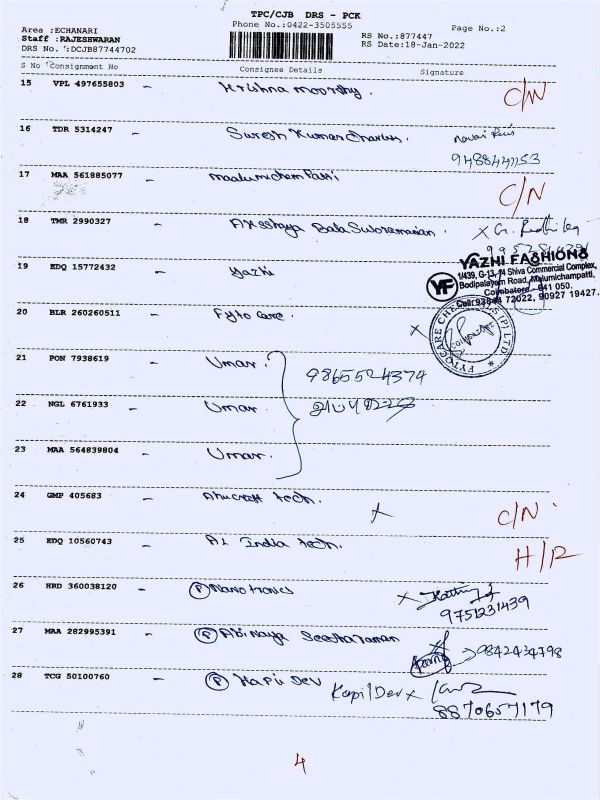 TPC/CJB DRS - PCK
Area :ECHANARI Phone No.:0422-3505555 Page No.:2
Staff :RAJESHWARAN RS No.:877447
DRS No. :DCJB87744702 RS Date:18-Jan-2022
S No Consignment No Consignee Details Signature
15 VPL 497655803 - Krishna moorthy. C/N
16 TDR 5314247 - Suresh Kumar
9488441153
17 MAA 561885077 - C/N
18 TMR 2990327 - Akshaya Bala Subramanian X G.
19 EDQ 15772432 - yazhi
YAZHI FASHIONS
YF 1/439, G-13, 14 Shiva Commercial Complex,
Bodipalayam Road, Malumichampatti,
Coimbatore - 641 050.
Cell: 93644 72022, 90927 19427.
20 BLR 260260511 - Fyto care. X
FYTOCARE (P) LTD.
21 PON 7938619 - Umar. 9865524374
22 NGL 6761933 - Umar
23 MAA 564839804 - Umar.
24 GMP 405683 - tech. X C/N
25 EDQ 10560743 - A1 India tech. H/R
26 HRD 360038120 - P Nanotronics X
9751231439
27 MAA 282995391 - P Abinaya Seetharaman 9842434798
28 TCG 50100760 - P Kapil Dev Kapil Dev X
8870657179
4